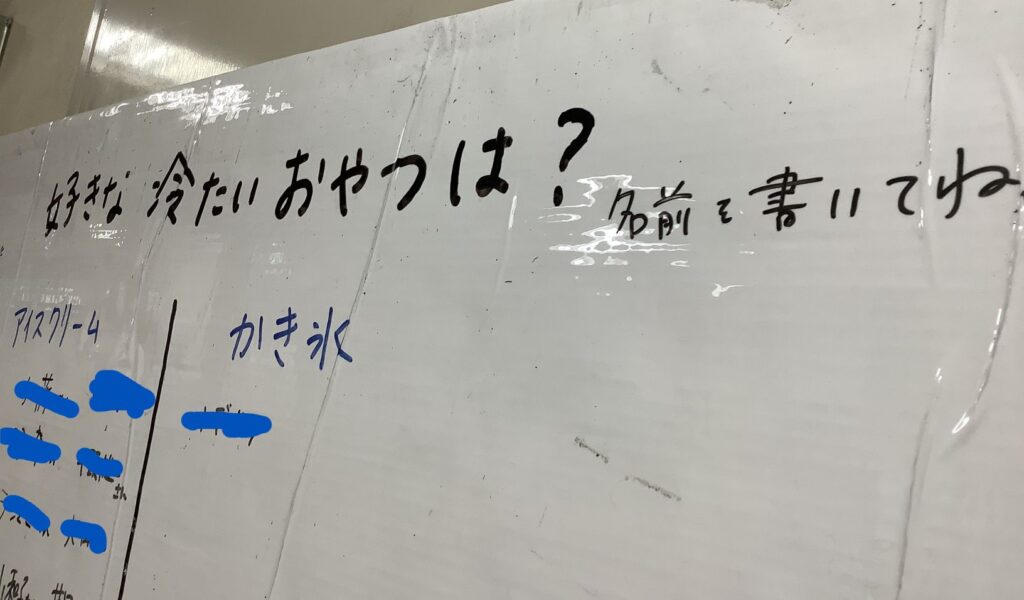 好きな冷たいおやつは?
名前を書いてね
アイスクリーム
かき氷
さん